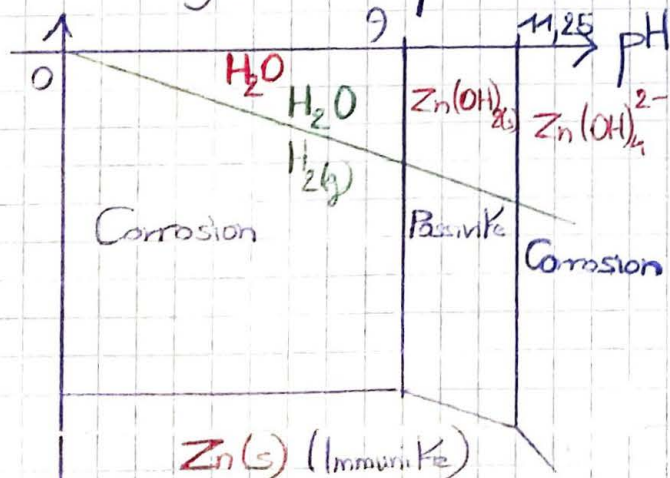 9
11,25
pH
0
H₂O
H₂O
H₂(g)
Zn(OH)₂(s)
Zn(OH)₄²⁻
Corrosion
Passivité
Corrosion
Zn(s) (Immunité)